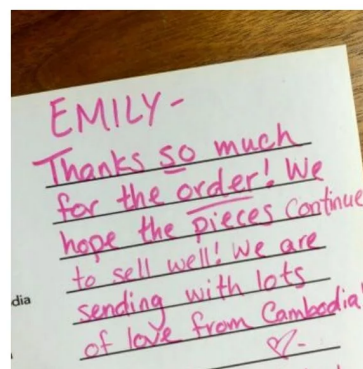 EMILY-
Thanks so much
for the order! We
hope the pieces continue
to sell well! We are
sending with lots
of love from Cambodia!
dia